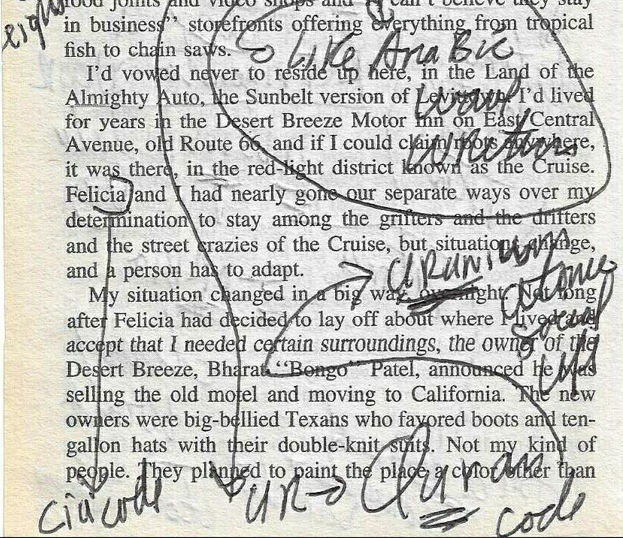 eight
food joints and video shops and "I can't believe they stay
in business" storefronts offering everything from tropical
fish to chain saws.
Like Arabic
I'd vowed never to reside up here, in the Land of the
Almighty Auto, the Sunbelt version of I'd lived
for years in the Desert Breeze Motor Inn on East Central
Avenue, old Route 66, and if I could claim roots anywhere,
it was there, in the red-light district known as the Cruise.
Felicia and I had nearly gone our separate ways over my
determination to stay among the grifters and the drifters
and the street crazies of the Cruise, but situations change,
and a person has to adapt.
My situation changed in a big way, overnight. Not long
after Felicia had decided to lay off about where I lived and
accept that I needed certain surroundings, the owner of the
Desert Breeze, Bharat "Bongo" Patel, announced he was
selling the old motel and moving to California. The new
owners were big-bellied Texans who favored boots and ten-
gallon hats with their double-knit suits. Not my kind of
people. They planned to paint the place a color other than
code